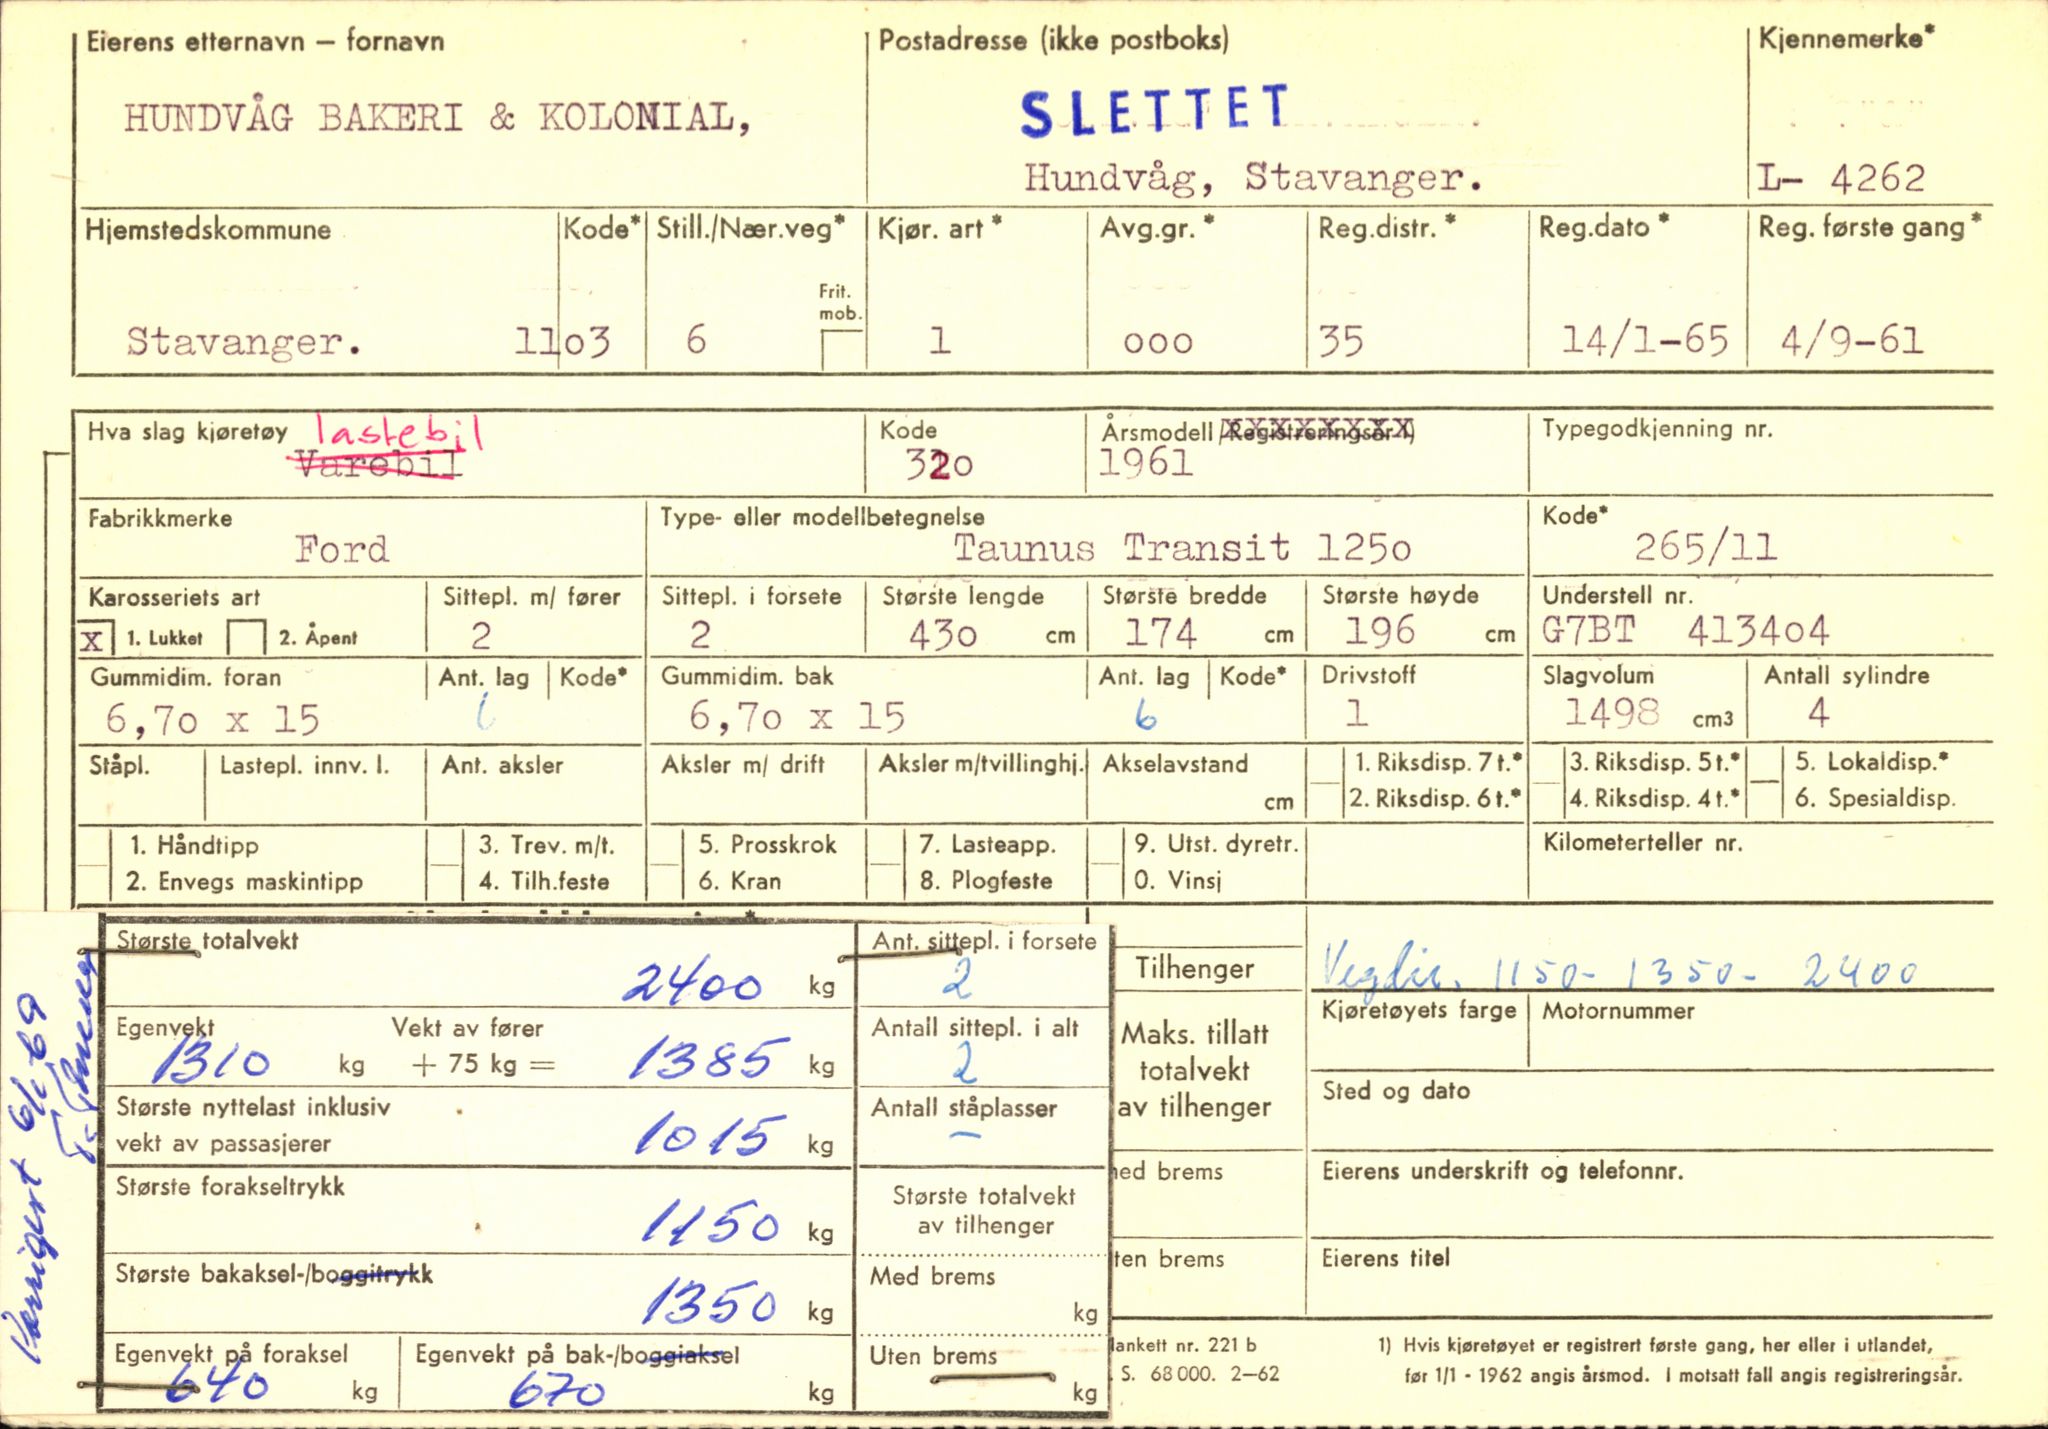 Eierens etternavn – fornavn
Postadresse (ikke postboks)
Kjennemerke*
HUNDVÅG BAKERI & KOLONIAL,
SLETTET
Hundvåg, Stavanger.
L- 4262
Hjemstedskommune
Kode*
Still./Nær.veg*
Kjør. art*
Avg.gr.*
Reg.distr.*
Reg.dato*
Reg. første gang*
Frit. mob.
Stavanger.
1103
6
1
ooo
35
14/1-65
4/9-61
Hva slag kjøretøy
lastebil
Varebil
Kode
320
Årsmodell/Registreringsår 1)
1961
Typegodkjenning nr.
Fabrikkmerke
Ford
Type- eller modellbetegnelse
Taunus Transit 1250
Kode*
265/11
Karosseriets art
x 1. Lukket 2. Åpent
Sittepl. m/ fører
2
Sittepl. i forsete
2
Største lengde
430 cm
Største bredde
174 cm
Største høyde
196 cm
Understell nr.
G7BT 413404
Gummidim. foran
6,70 x 15
Ant. lag
Kode*
Gummidim. bak
6,70 x 15
Ant. lag
6
Kode*
Drivstoff
1
Slagvolum
1498 cm3
Antall sylindre
4
Ståpl.
Lastepl. innv. l.
Ant. aksler
Aksler m/ drift
Aksler m/tvillinghj.
Akselavstand
cm
1. Riksdisp. 7 t.*
2. Riksdisp. 6 t.*
3. Riksdisp. 5 t.*
4. Riksdisp. 4 t.*
5. Lokaldisp.*
6. Spesialdisp.
1. Håndtipp
2. Envegs maskintipp
3. Trev. m/t.
4. Tilh.feste
5. Prosskrok
6. Kran
7. Lasteapp.
8. Plogfeste
9. Utst. dyretr.
0. Vinsj
Kilometerteller nr.
Største totalvekt
2400 kg
Ant. sittepl. i forsete
2
Egenvekt
1310 kg
Vekt av fører
+ 75 kg =
1385 kg
Antall sittepl. i alt
2
Største nyttelast inklusiv
vekt av passasjerer
1015 kg
Antall ståplasser
–
Største forakseltrykk
1150 kg
Største totalvekt
av tilhenger
Største bakaksel-/boggitrykk
1350 kg
Med brems
kg
Egenvekt på foraksel
640 kg
Egenvekt på bak-/boggiaksel
670 kg
Uten brems
kg
Tilhenger
Maks. tillatt
totalvekt
av tilhenger
ed brems
ten brems
Vegdir. 1150- 1350- 2400
Kjøretøyets farge
Motornummer
Sted og dato
Eierens underskrift og telefonnr.
Eierens titel
lankett nr. 221 b
. S. 68 000. 2–62
1) Hvis kjøretøyet er registrert første gang, her eller i utlandet,
før 1/1 - 1962 angis årsmod. I motsatt fall angis registreringsår.